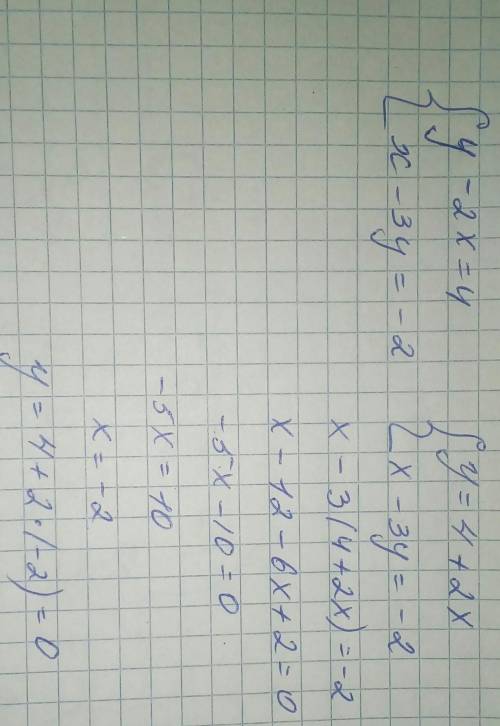 { y - 2x = 4
x - 3y = -2
{ y = 4 + 2x
x - 3y = -2
x - 3(4 + 2x) = -2
x - 12 - 6x + 2 = 0
-5x - 10 = 0
-5x = 10
x = -2
y = 4 + 2·(-2) = 0